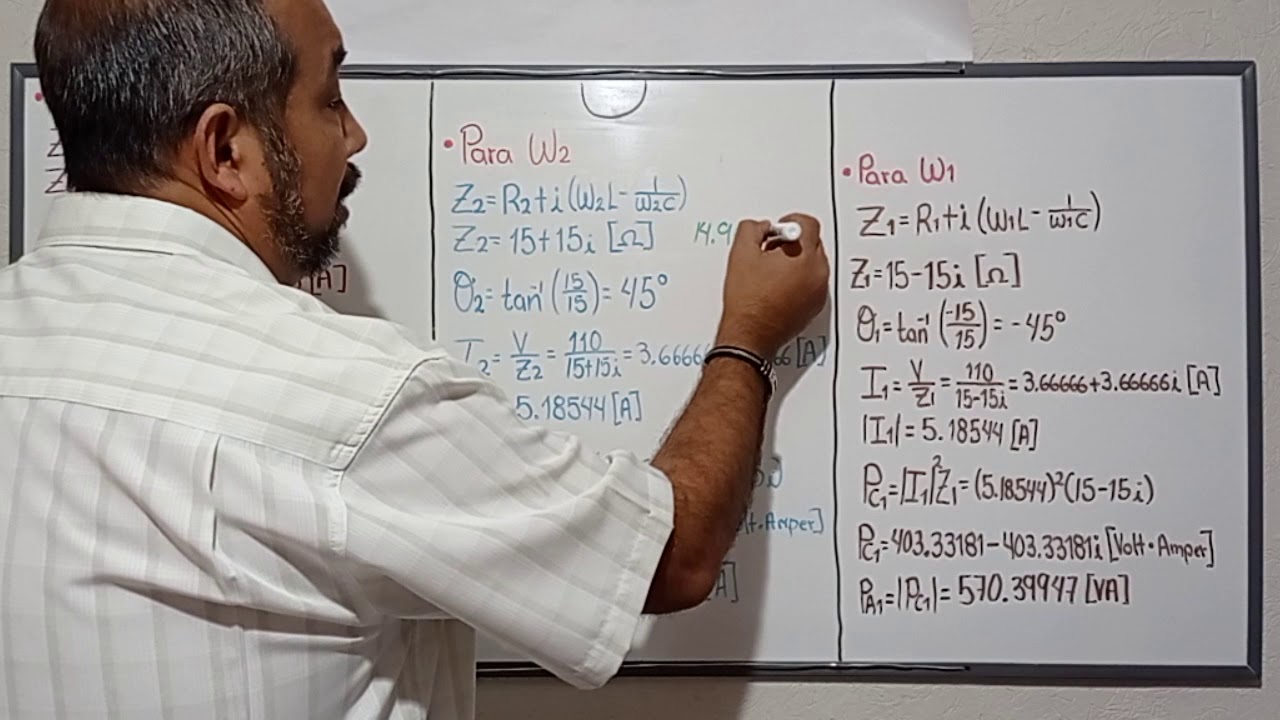 Z
Z
[A]
• Para W2
Z2 = R2 + i (W2L - 1/W2C)
Z2 = 15 + 15i [Ω]
14.9
θ2 = tan⁻¹ (15/15) = 45°
I2 = V/Z2 = 110/15+15i = 3.6666 66 [A]
5.18544 [A]
t.Amper]
A]
• Para W1
Z1 = R1 + i (W1L - 1/W1C)
Z1 = 15 - 15i [Ω]
θ1 = tan⁻¹ (-15/15) = -45°
I1 = V/Z1 = 110/15-15i = 3.66666 + 3.66666i [A]
|I1| = 5.18544 [A]
PC1 = |I1|²Z1 = (5.18544)²(15 - 15i)
PC1 = 403.33181 - 403.33181i [Volt • Amper]
PA1 = |PC1| = 570.39947 [VA]